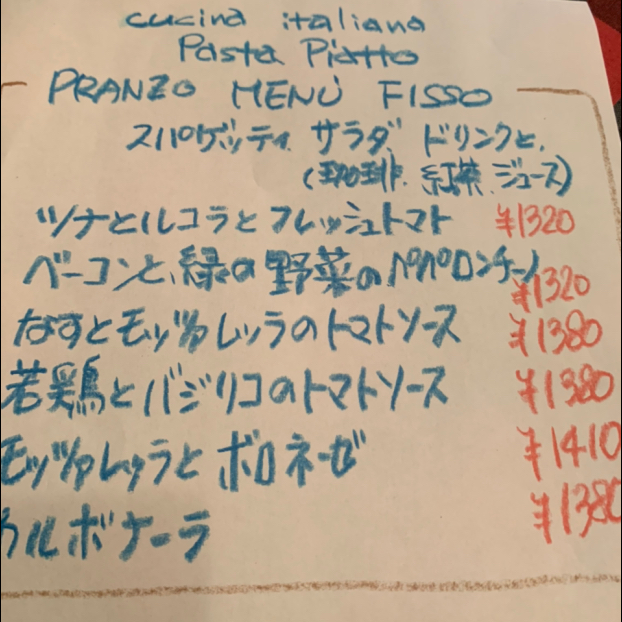 cucina italiana
Pasta Piatto
PRANZO MENÙ FISSO
スパゲッティ サラダ ドリンクと、
(珈琲、紅茶、ジュース)
ツナとルコラとフレッシュトマト ¥1320
ベーコンと、緑の野菜のペペロンチーノ ¥1320
なすとモッツァレッラのトマトソース ¥1380
若鶏とバジリコのトマトソース ¥1380
モッツァレッラとボロネーゼ ¥1410
カルボナーラ ¥1380